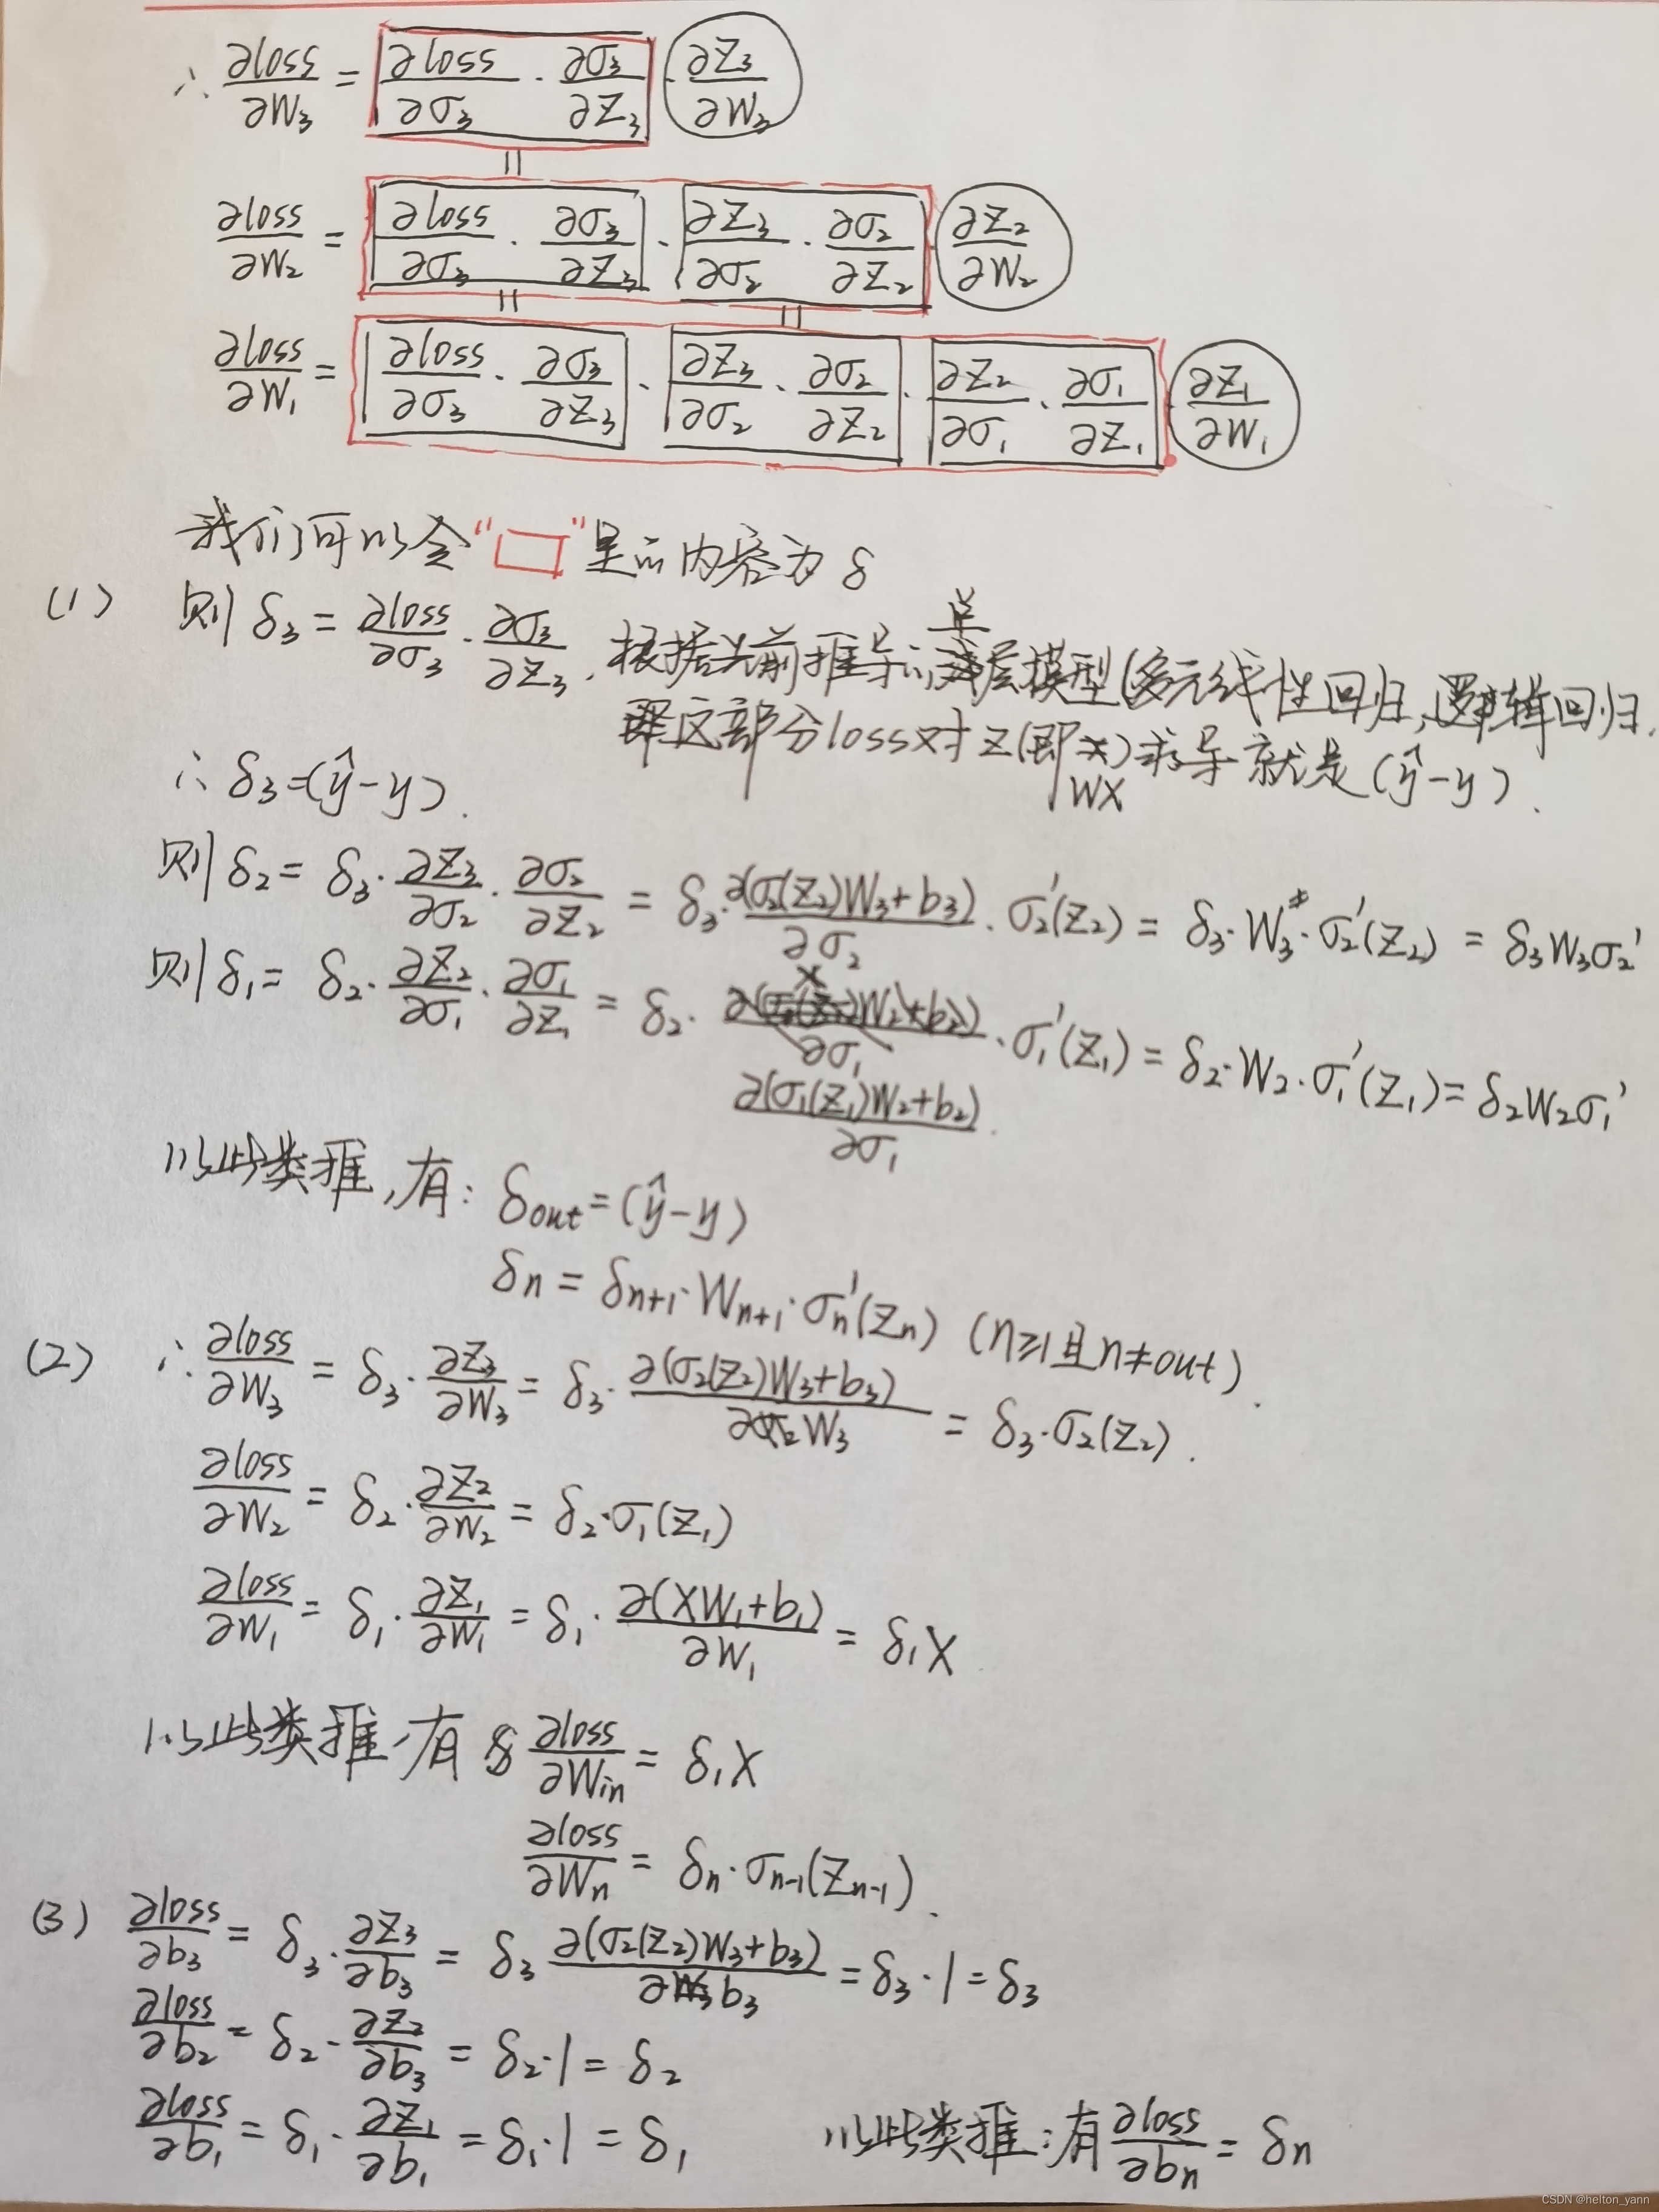 ∴ ∂loss/∂W₃ = ∂loss/∂σ₃ · ∂σ₃/∂Z₃ · ∂Z₃/∂W₃
||
∂loss/∂W₂ = ∂loss/∂σ₃ · ∂σ₃/∂Z₃ · ∂Z₃/∂σ₂ · ∂σ₂/∂Z₂ · ∂Z₂/∂W₂
|| ||
∂loss/∂W₁ = ∂loss/∂σ₃ · ∂σ₃/∂Z₃ · ∂Z₃/∂σ₂ · ∂σ₂/∂Z₂ · ∂Z₂/∂σ₁ · ∂σ₁/∂Z₁ · ∂Z₁/∂W₁
我们可以令“□”里的内容为 δ
(1) 则 δ₃ = ∂loss/∂σ₃ · ∂σ₃/∂Z₃. 根据先前推导的单层模型(多元线性回归,逻辑回归.
这部分loss对Z(即WX)求导就是(ŷ-y).
∴ δ₃=(ŷ-y).
则 δ₂ = δ₃· ∂Z₃/∂σ₂ · ∂σ₂/∂Z₂ = δ₃· ∂(σ₂(Z₂)W₃+b₃)/∂σ₂ · σ₂'(Z₂) = δ₃·W₃·σ₂'(Z₂) = δ₃W₃σ₂'
则 δ₁ = δ₂· ∂Z₂/∂σ₁ · ∂σ₁/∂Z₁ = δ₂· ∂(σ₁(Z₁)W₂+b₂)/∂σ₁ · σ₁'(Z₁) = δ₂·W₂·σ₁'(Z₁) = δ₂W₂σ₁'
以此类推,有: δout=(ŷ-y)
δn = δn+1·Wn+1·σn'(Zn) (n≥1且n≠out).
(2) ∴ ∂loss/∂W₃ = δ₃· ∂Z₃/∂W₃ = δ₃· ∂(σ₂(Z₂)W₃+b₃)/∂W₃ = δ₃·σ₂(Z₂).
∂loss/∂W₂ = δ₂· ∂Z₂/∂W₂ = δ₂·σ₁(Z₁)
∂loss/∂W₁ = δ₁· ∂Z₁/∂W₁ = δ₁· ∂(XW₁+b₁)/∂W₁ = δ₁X
以此类推,有 ∂loss/∂Win = δ₁X
∂loss/∂Wn = δn·σn-1(Zn-1).
(3) ∂loss/∂b₃ = δ₃· ∂Z₃/∂b₃ = δ₃ ∂(σ₂(Z₂)W₃+b₃)/∂b₃ = δ₃·1 = δ₃
∂loss/∂b₂ = δ₂· ∂Z₂/∂b₃ = δ₂·1 = δ₂
∂loss/∂b₁ = δ₁· ∂Z₁/∂b₁ = δ₁·1 = δ₁ 以此类推:有 ∂loss/∂bn = δn
CSDN @helton_yann